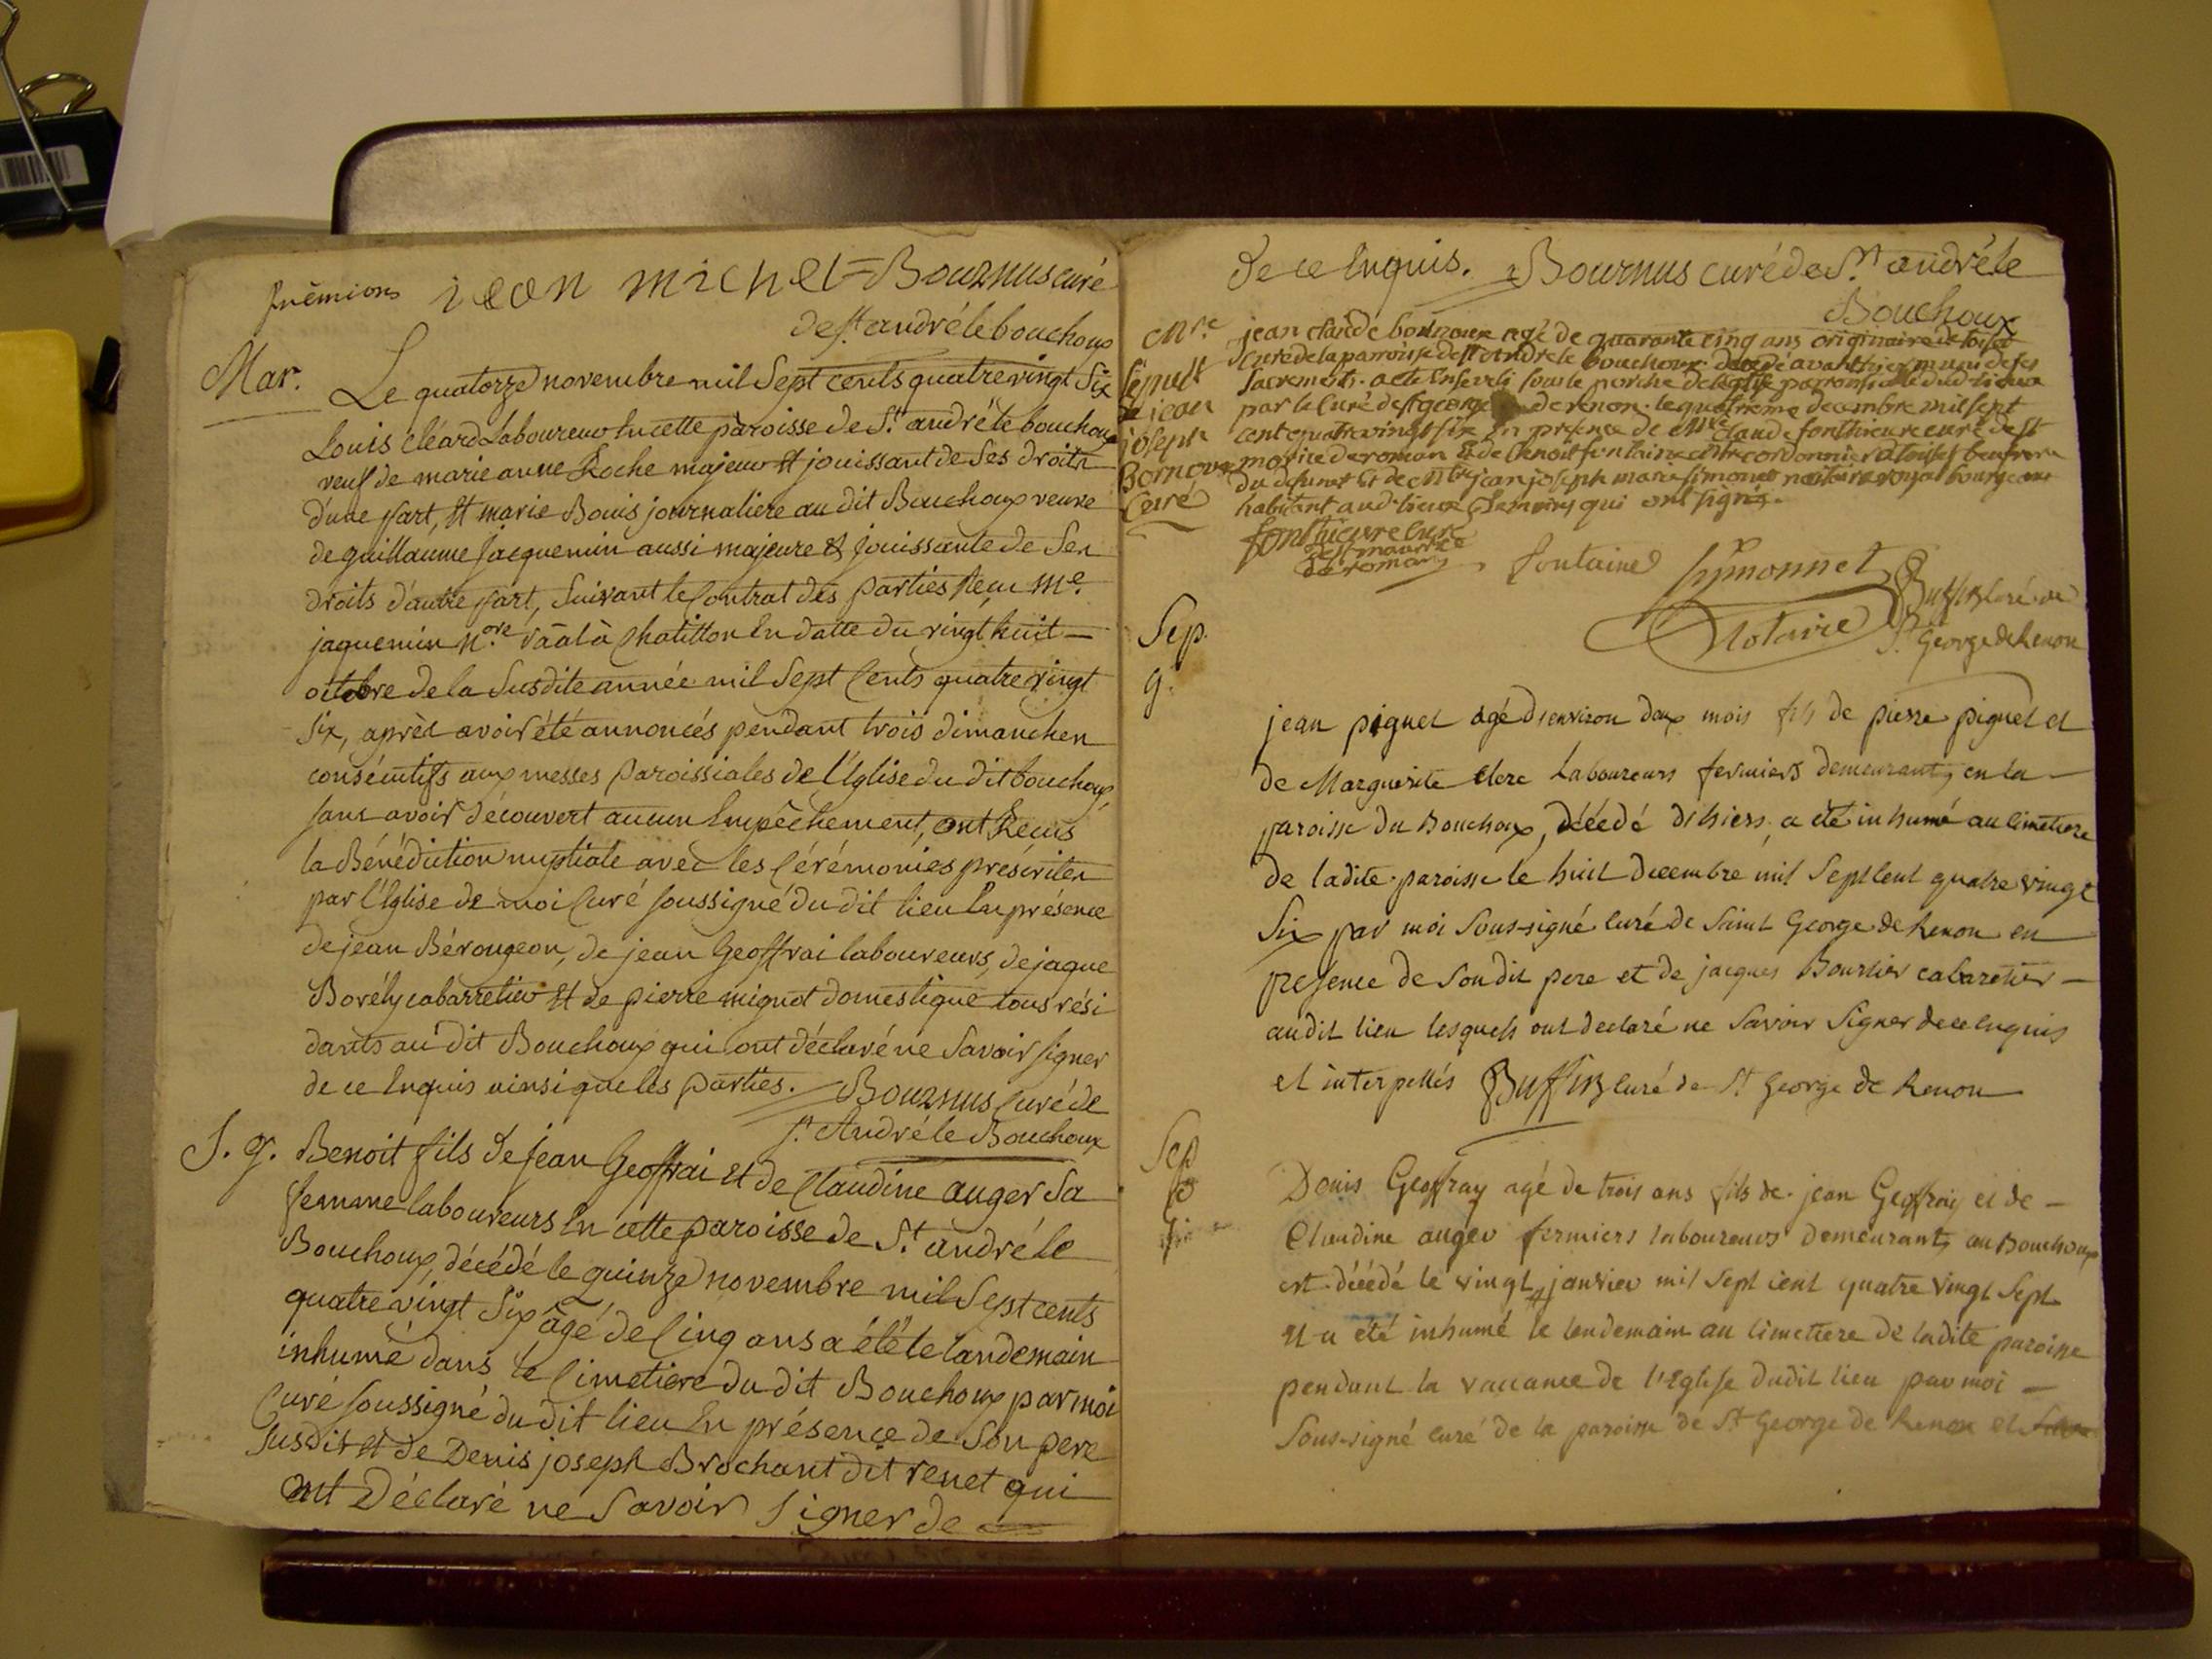 frêmion jean michel = Bournus curé
de st andré le bouchoux
Mar. Le quatorze novembre mil Sept cents quatre vingt Six
Louis Cléard Laboureur En cette pàroisse de St andré le bouchoux
veuf de marie anne Roche majeur Et jouissant de Ses droits
d'une part, Et marie Bouis journaliere au dit Bouchoux veuve
de guillaume jacquemin aussi majeure & jouissante de Ses
droits d'autre part, Suivant le Contrat des parties Reçu Me.
jaquemin Nore Rāal à Chatillon En datte du vingt huit
octobre de la Susdite année mil Sept Cents quatre vingt
Six, après avoir été annoncés pendant trois dimanches
consécutifs aux messes paroissiales de l'Eglise du dit bouchoux,
sans avoir découvert aucun Empêchement, ont Reçus
la Bénédiction nuptiale avec les Cérémonies préscrites
par l'Eglise de moi Curé soussigné du dit lieu En présence
de jean Bérougeon, de jean Geoffrai laboureurs, de jaque
Borély cabarretier Et de pierre mignot domestique tous rési
dants au dit Bouchoux qui ont déclaré ne Savoir signer
de ce Enquis ainsi que les parties. Bournus Curé de
st. André le Bouchoux
S. g. Benoit fils de jean Geoffrai Et de Claudine auger Sa
femme laboureurs En cette paroisse de St. andré le
Bouchoux, décédé le quinze novembre mil Sept cents
quatre vingt Six âgé de Cinq ans a été le landemain
inhumé dans le Cimetiere du dit Bouchoux par moi
Curé soussigné du dit lieu En présence de Son pere
Susdit Et de Denis joseph Brochant dit renet qui
ont Déclaré ne Savoir Signer de
de ce Enquis. Bournus curé de St andré le
Bouchoux
Mre jean claude bornoux agé de quarante cinq ans originaire de
curé de la parroisse de st andré le bouchoux decedé avant hier muni de ses
sepult sacrements. a eté Enseveli sous le porche de leglise parroissialle dud. lieux
de jean par le Curé de st george de renon. le quatrieme decembre mil sept
joseph cent quatre vingt six En presence de Mre claude fonthieure curé de st
Bornoux morice de roman Et de benoit fontaine cordonnier beaufrere
Curé du defunt Et de Mtre jean joseph marie simonet notaire royal bourgeois
habitant aud. lieux qui ont signés.
fonthieure curé
de st maurice
de roman
fontaine Symonnet Buffin Curé de
Notaire St. George de Renon
Sep.
g.
jean piguet agé d'environ deux mois fils de pierre piguet et
de Marguerite Clere Laboureurs fermiers demeurants en la
paroisse du Bouchoux, décédé d'hiers, a été inhumé au Cimetiere
de ladite paroisse le huit decembre mil Sept Cent quatre vingt
Six par moi Sous-signé Curé de Saint George de Renon en
presence de Son dit pere et de jacques Bourlier cabaretier
audit lieu lesquels ont declaré ne Savoir Signer de ce Enquis
et interpellés Buffin Curé de St George de Renon
Sep
Denis Geoffray agé de trois ans fils de jean Geoffray et de
Claudine auger fermiers laboureurs demeurants au Bouchoux
est décédé le vingt janvier mil Sept cent quatre vingt Sept
Et a été inhumé le lendemain au Cimettiere de ladite paroisse
pendant la vacance de l'Eglise dudit lieu par moi
Sous-signé curé de la paroisse de St George de Renon et